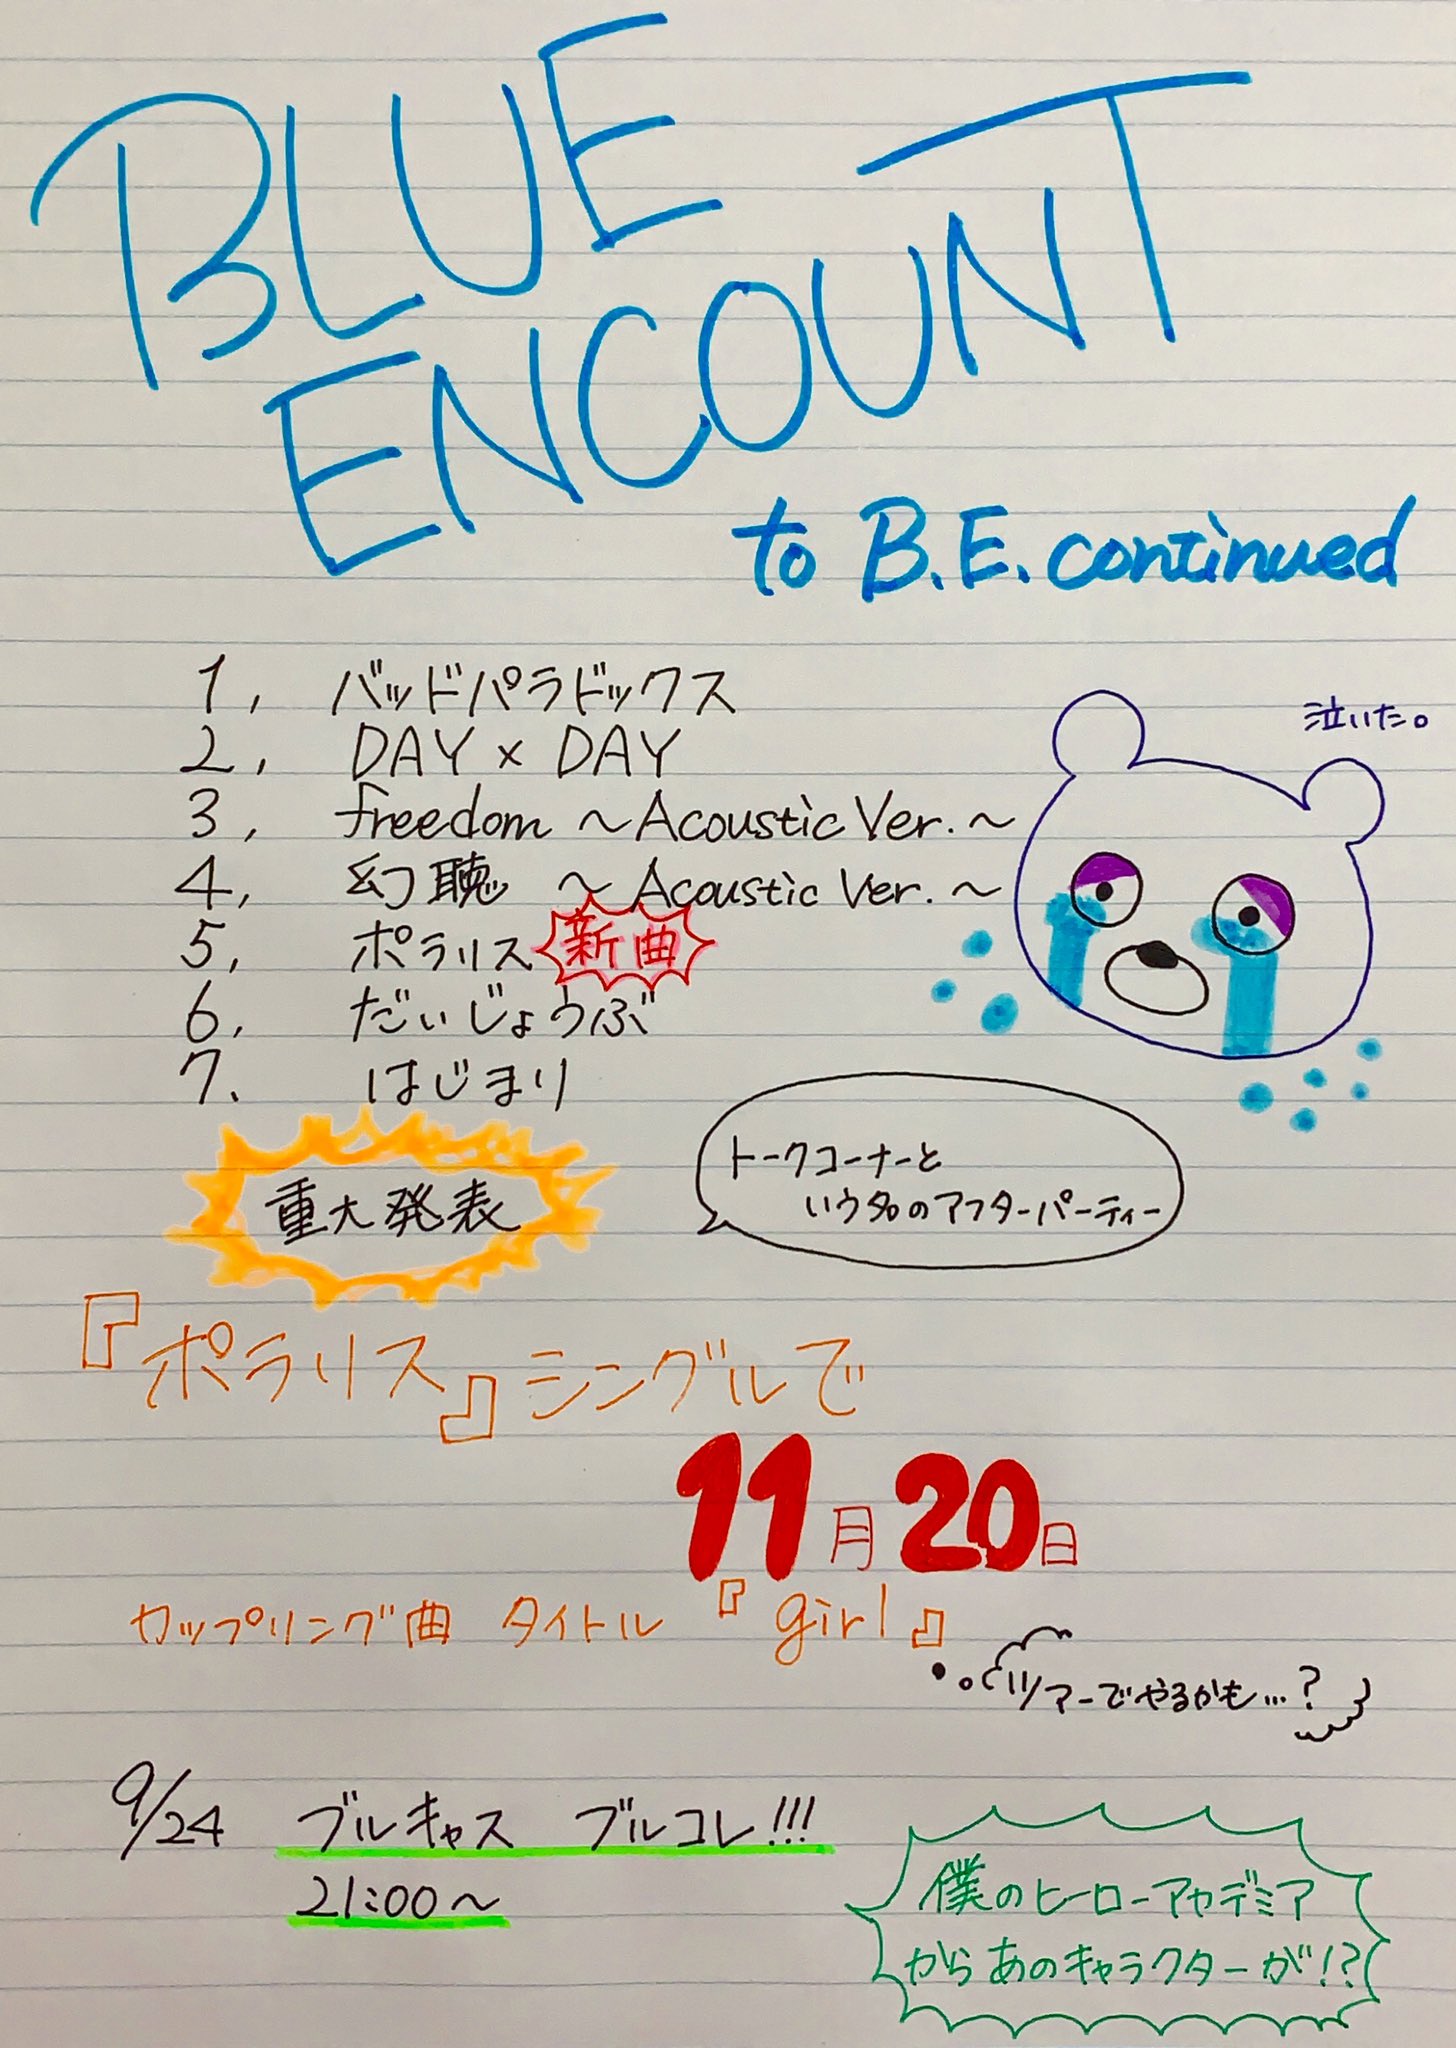 BLUE
ENCOUNT
to B.E.continued
1, バッドパラドックス
2, DAY×DAY
泣いた。
3, freedom 〜Acoustic Ver.〜
4, 幻聴 〜Acoustic Ver.〜
5, ポラリス 新曲
6, だいじょうぶ
7. はじまり
重大発表
トークコーナーと
のアフターパーティー
『ポラリス』シングルで
11月20日
カップリング曲 タイトル 『girl』
ツアーでやるかも…?
9/24 ブルキャス ブルコレ!!!
21:00〜
僕のヒーローアカデミア
からあのキャラクターが!?